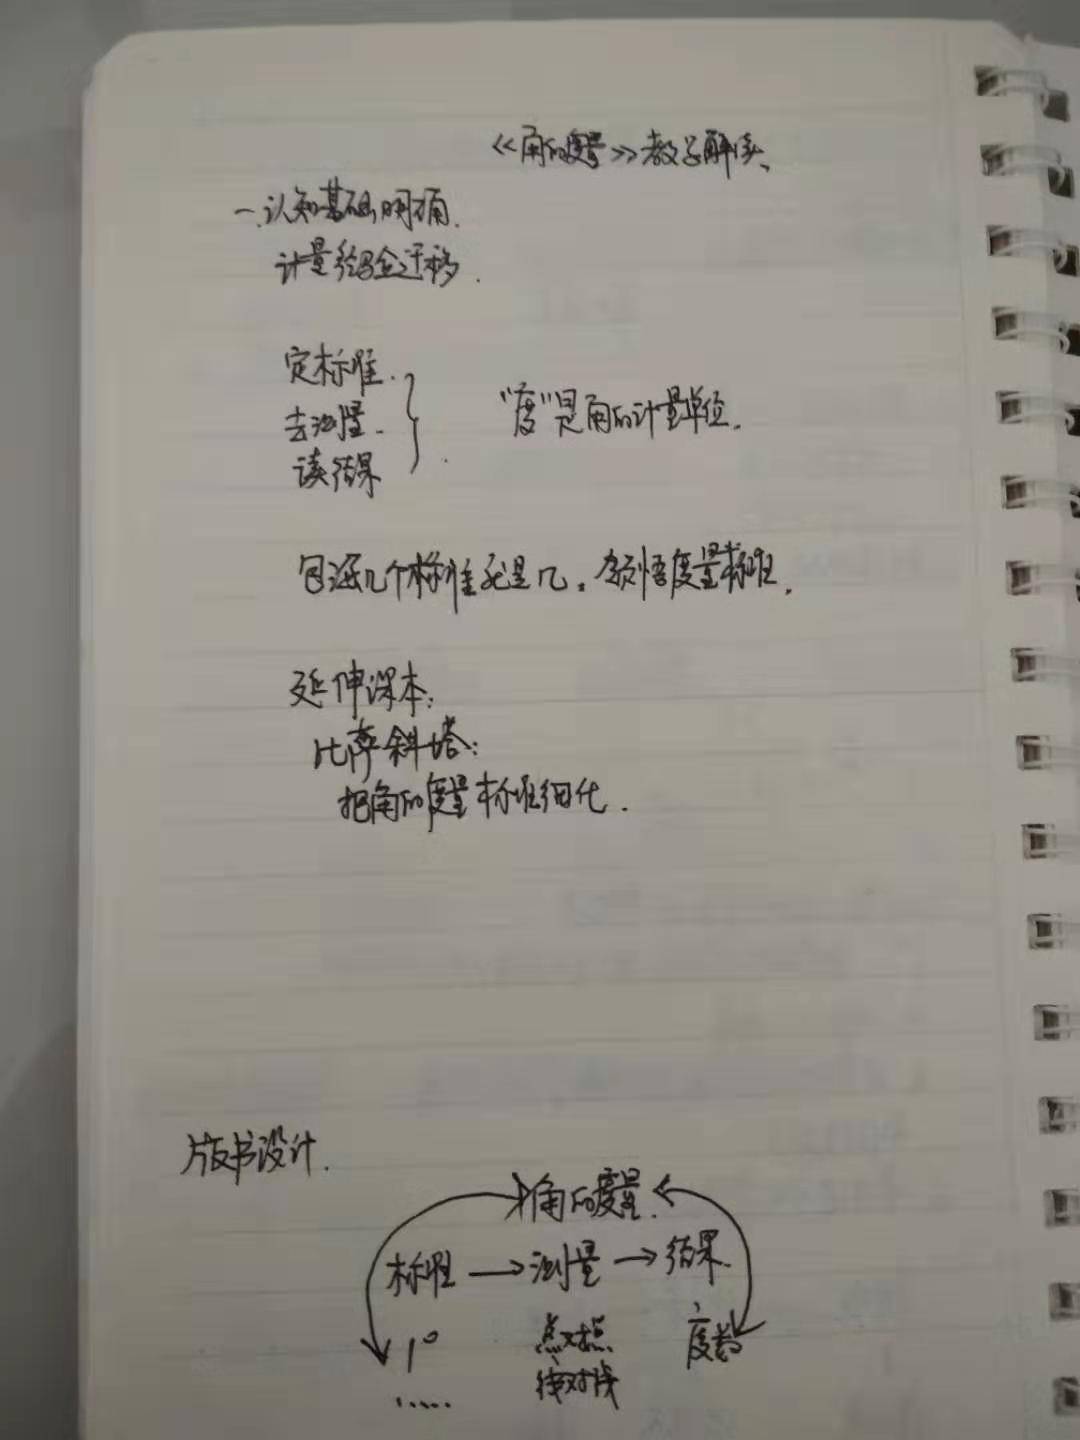 《角的度量》教学解读、
一.认知基础明确.
计量经验迁移.
定标准.
去测量.
读结果
“度”是角的计量单位.
包涵几个标准就是几。领悟度量标准.
延伸课本:
比萨斜塔:
把角的度量标准细化.
版书设计.
角的度量.
标准→测量→结果.
1° 点对点 度数
..... 线对线